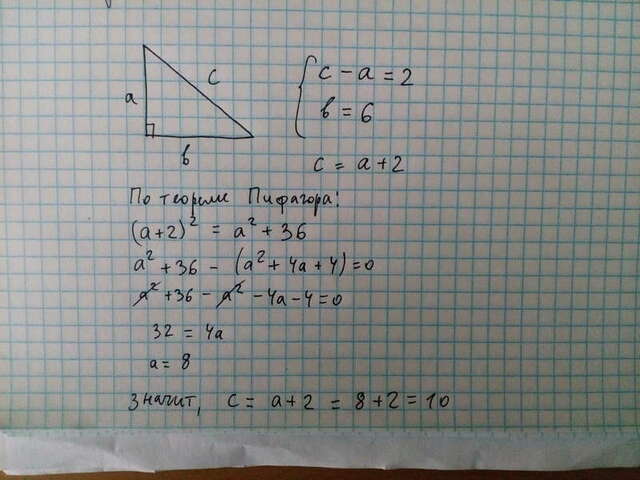 a
c
b
c - a = 2
b = 6
c = a + 2
По теореме Пифагора:
(a+2)² = a² + 36
a² + 36 - (a² + 4a + 4) = 0
a² + 36 - a² - 4a - 4 = 0
32 = 4a
a = 8
Значит, c = a + 2 = 8 + 2 = 10